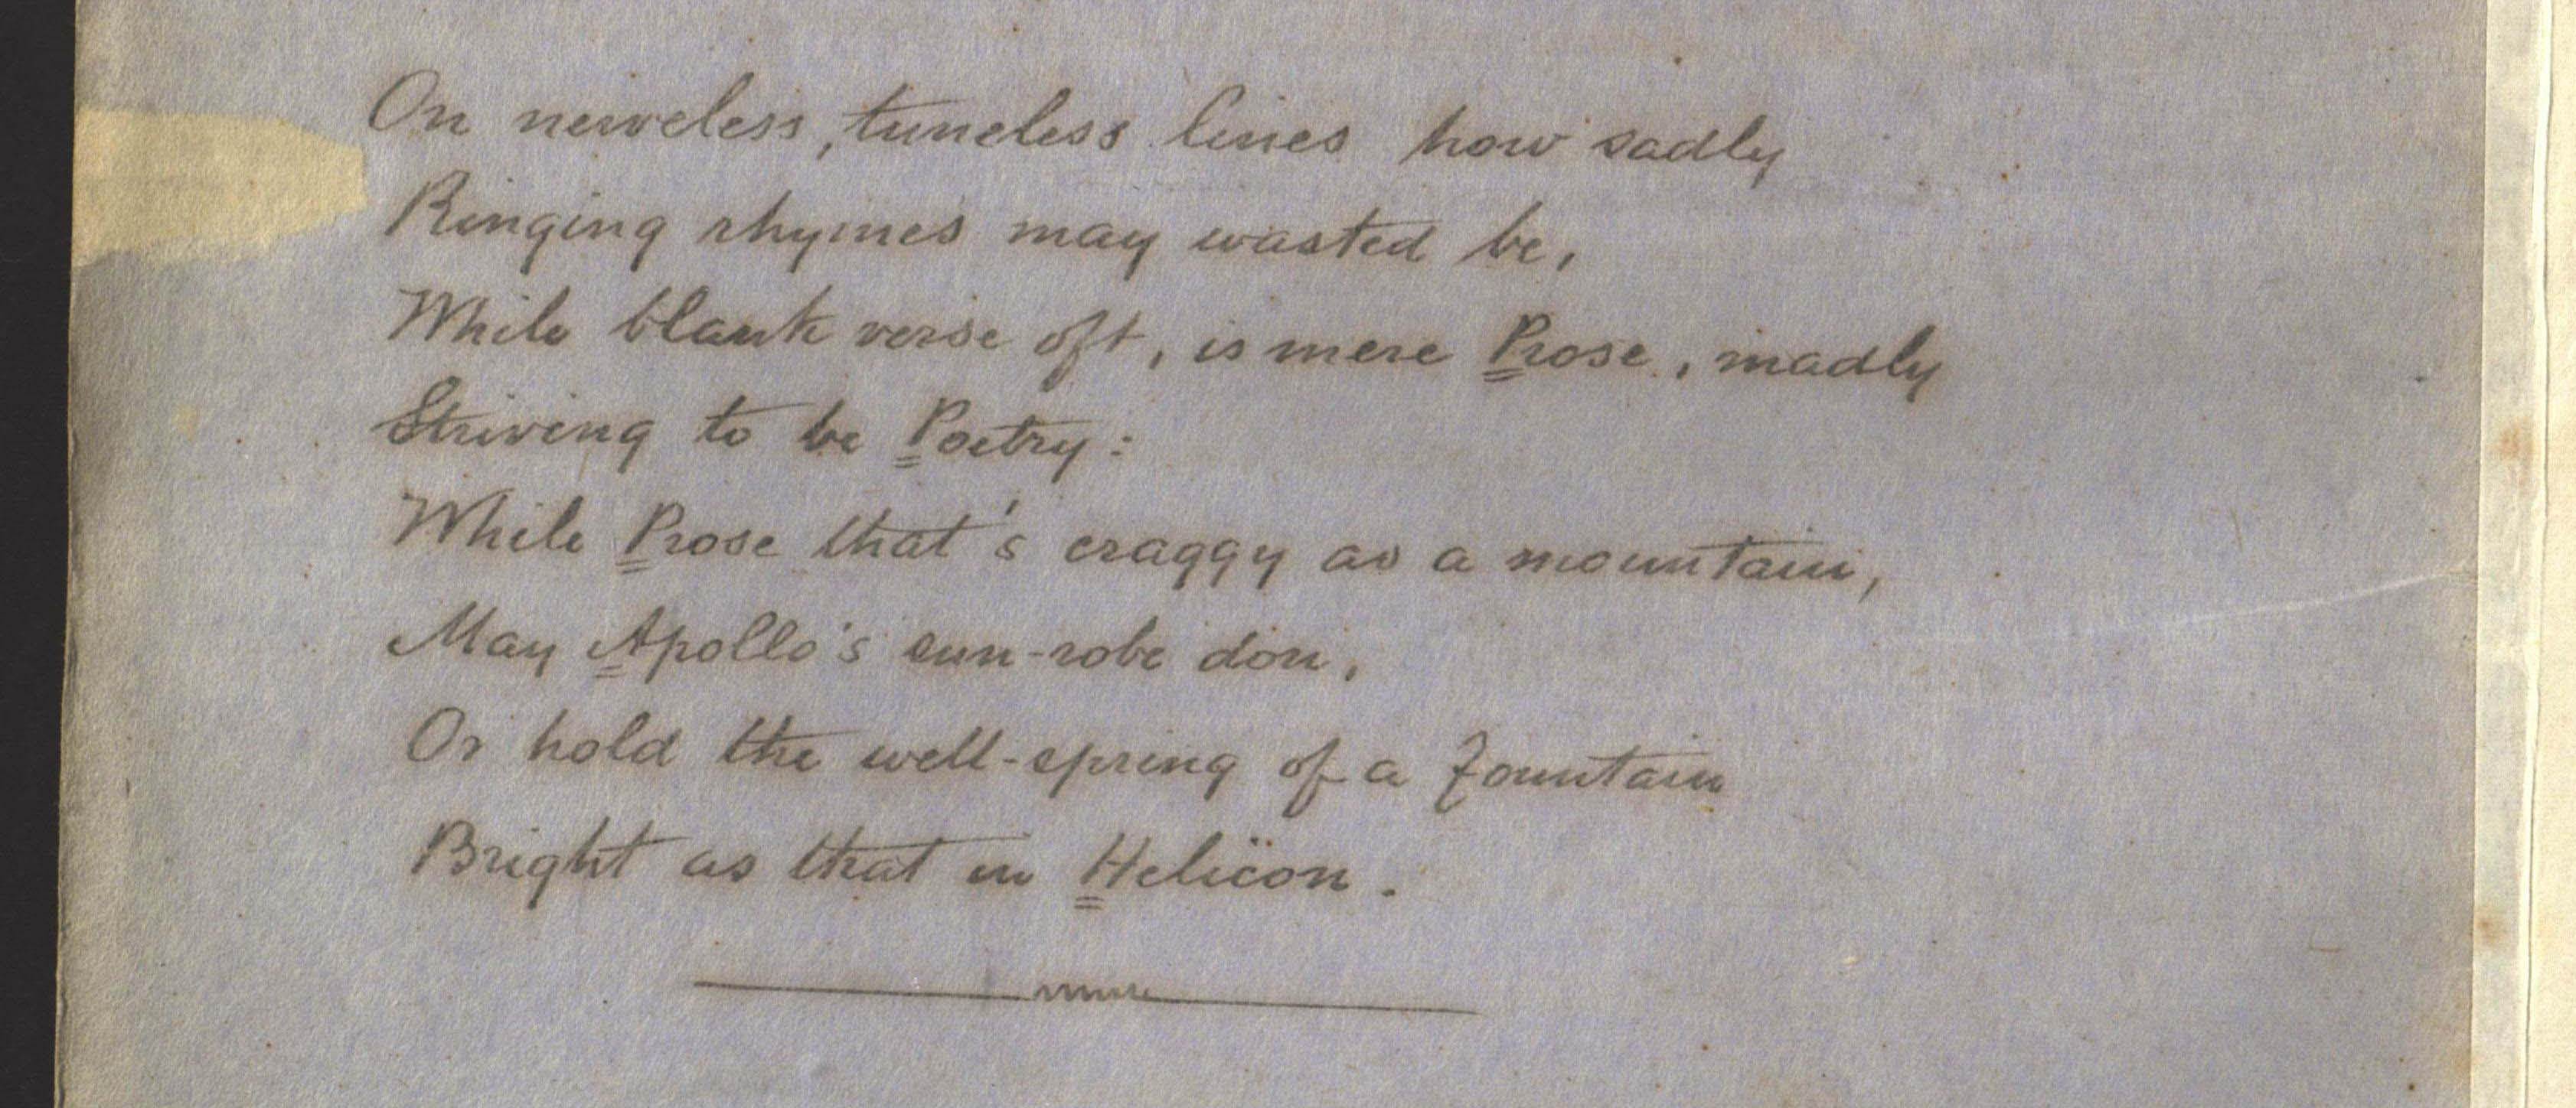 On nerveless, tuneless lines how sadly
Ringing rhymes may wasted be,
While blank verse oft, is mere Prose, madly
Striving to be Poetry:
While Prose that's craggy as a mountain,
May Apollo's sun-robe don,
Or hold the well-spring of a fountain
Bright as that in Helicon.